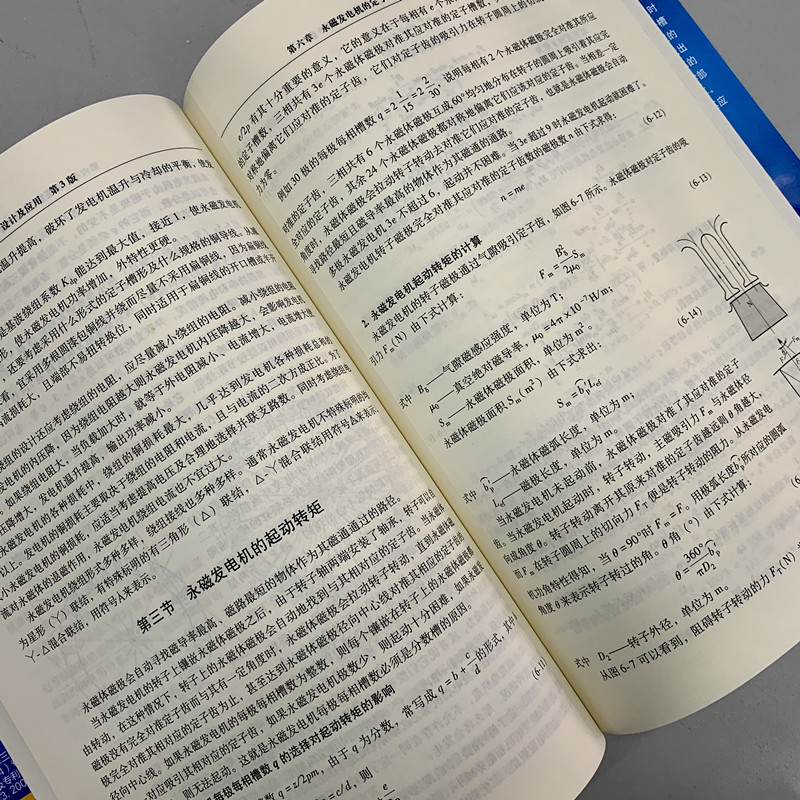 设计及应用 第3版
温升提高，破坏了发电机温升与冷却的平衡，使
是基波绕组系数 Kdp 能达到最大值，接近 1，使永磁发电
形，使永磁发电机功率增加，外特性更硬。
还要考虑采用什么形式的定子槽形及什么规格的铜导线。从
看，宜采用多根圆漆包铜线并绕而尽量不采用扁铜线，因为扁铜线
流损耗大，且端部不易扭转换位，同时适用于扁铜线的开口槽或半开
绕组的设计还应考虑绕组的电阻，应尽量减小绕组的电阻。减小绕组的电阻
电机的内压降，因为绕组电阻越大则永磁发电机内压降越大，会影响发电机
如果绕组电阻大，当负载加大时，就等于外电阻减小、电流增大，电流增大使
压降增大，发电机温升提高，输出功率减小。
永磁发电机的各种损耗中，绕组的铜损耗最大，几乎达到发电机各种损耗总和的
以上。发电机的铜损耗主要取决于绕组的电阻和电流，且与电流的二次方成正比。为了
小永磁发电机的铜损耗，应适当考虑提高电压及合理地选择并联支路数。同时考虑绕组电
流对永磁体的退磁作用，永磁发电机绕组电流也不宜过大。
永磁发电机绕组形式多种多样，绕组接线也多种多样。通常永磁发电机不特殊标明的均
为星形（Y）联结，有特殊标明的有三角形（△）联结，△-Y混合联结用符号A来表示，
Y-△混合联结，用符号A来表示。
第三节 永磁发电机的起动转矩
永磁体磁极会自动寻找磁导率最高、磁路最短的物体作为其磁通通过的路径。
当永磁发电机的转子上镶嵌永磁体磁极之后，由于转子轴两端安装了轴承，转子可以自
由转动，在这种情况下，转子上的永磁体磁极会自动地找到与其相对应的定子齿。当永磁体
磁极没有完全对准定子齿而与其有一定角度时，永磁体磁极会拉动转子转动，直到永磁体磁
极完全对准其相对应的定子齿为止，甚至达到永磁体磁极径向中心线对准其相应的定子齿的
径向中心线。如果永磁发电机的每极每相槽数为整数，则每个镶嵌在转子上的永磁体磁极都
对应吸引其相对应的定子齿，如果永磁发电机极数少，则起动十分困难，如果永磁发
则无法起动。这就是永磁发电机每极每相槽数必须是分数槽的原因。
每极每相槽数 q 的选择对起动转矩的影响
槽数 q = z/2pm，由于 q 为分数，常写成 q = b + c/d 的形式，其中
= c/d，则
(6-11)
第六章 永磁发电机的定子
e/2p 有其十分重要的意义，它的意义在于每相有 e 个永
的定子槽数，三相共有 3e 个永磁体磁极对准其应对准的定子槽数，
对称地偏离它们应对准的定子齿，它们对定子齿的吸引力在转子圆周上的切
力为零。
例如 30 极的每极每相槽数 q = 2 1/15 = 2 2/30，说明每相有 2 个永磁体磁极完全对准其所应
对准的定子齿，三相共有 6 个永磁体磁极互成 60°均匀地分布在转子的圆周上吸引着其应完
全对应的定子齿，其余 24 个永磁体磁极都对称地偏离它们应该对应的定子齿。当相差一定
角度时，永磁体磁极会拉动转子转动去对准它们应对准的定子齿，也就是永磁体磁极会自动
寻找路径最短且磁导率最高的物体作为其磁通的通路。
多极永磁发电机 3e 不超过 6，起动并不困难。当 3e 超过 9 时永磁发电机起动就困难了。
永磁发电机转子磁极完全对准其应对准的定子齿数的磁极数 n 由下式求得：
n = me
(6-12)
2. 永磁发电机起动转矩的计算
永磁发电机的转子磁极通过气隙吸引定子齿，如图 6-7 所示。永磁体磁极对定子齿的吸
引力 Fm (N) 由下式计算：
Fm = Bδ²/2μ0 Sm
(6-13)
式中 Bδ——气隙磁感应强度，单位为 T；
μ0——真空绝对磁导率，μ0 = 4π × 10⁻⁷ H/m；
Sm——永磁体磁极面积，单位为 m²。
永磁体磁极面积 Sm (m²) 由下式求出：
Sm = bp Lef
(6-14)
式中 bp——永磁体磁极弧长度，单位为 m；
Lef——磁极长度，单位为 m。
当永磁发电机未起动前，永磁体磁极对准了其应对准的定子
齿。当永磁发电机起动时，转子转动，主磁吸引力 Fm 与永磁体径
向成角度 θ。转子转动离开其原来对准的定子齿越远则 θ 角越大，
而 Fm 在转子圆周上的切向力 FT 便是转子转动的阻力。从永磁发电
机功角特性得知，当 θ = 90°时 FT = Fm。用极弧长度 bp 所对应的圆弧
角度 θ 来表示转子转过的角。θ 角（°）由下式计算：
θ = 360° bp/πD2
式中 D2——转子外径，单位为 m。
从图 6-7 可以看到，阻碍转子转动的力 FT (N)